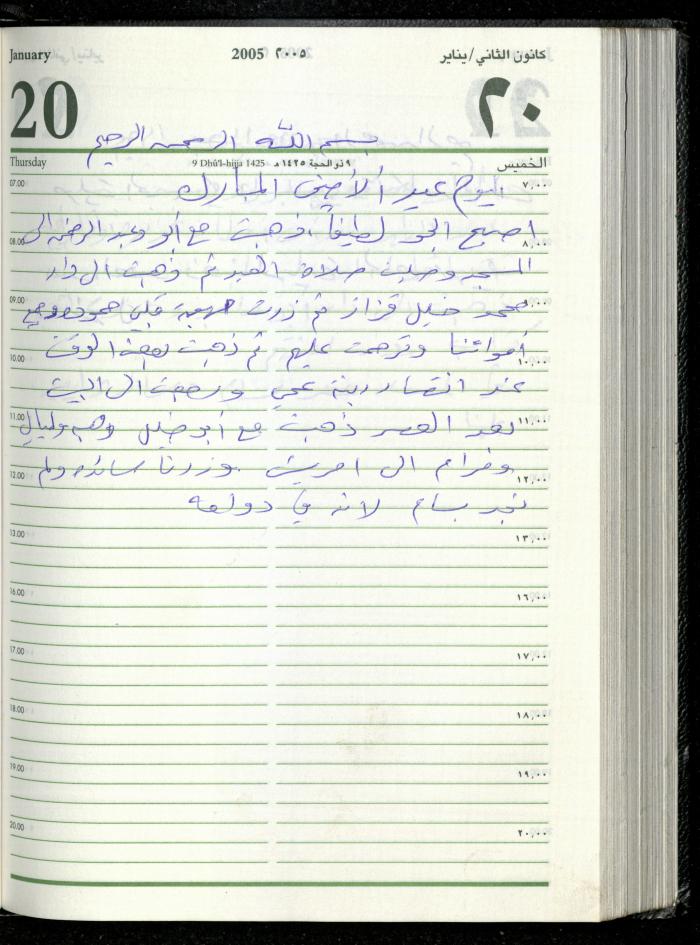 January 2005 ٢٠٠٥ كانون الثاني/يناير
20 ٢٠
بسم الله الرحمن الرحيم
Thursday 9 Dhû'l-hijja 1425 ٩ ذو الحجة ١٤٢٥ هـ الخميس
07.00 ٧,٠٠
اليوم عيد الأضحى المبارك
اصبح الجو لطيفاً، ذهبت مع أبو وعبد الرحمن الى
08.00 ٨,٠٠
المسجد وصليت صلاة العيد ثم ذهبت الى دار
09.00 ٩,٠٠
محمد خليل قزاز ثم زرت
أمواتنا وترحمت عليهم ثم ذهبت بعض الوقت
10.00 ١٠,٠٠
عند انتصار ابنة عمي ورجعت الى البيت
11.00 ١١,٠٠
بعد العصر ذهبت مع أبو خليل
12.00 ١٢,٠٠
ومرام الى امريش وزرنا سائده ولم
نجد بسام لانه في دولعه
13.00 ١٣,٠٠
16.00 ١٦,٠٠
17.00 ١٧,٠٠
18.00 ١٨,٠٠
19.00 ١٩,٠٠
20.00 ٢٠,٠٠